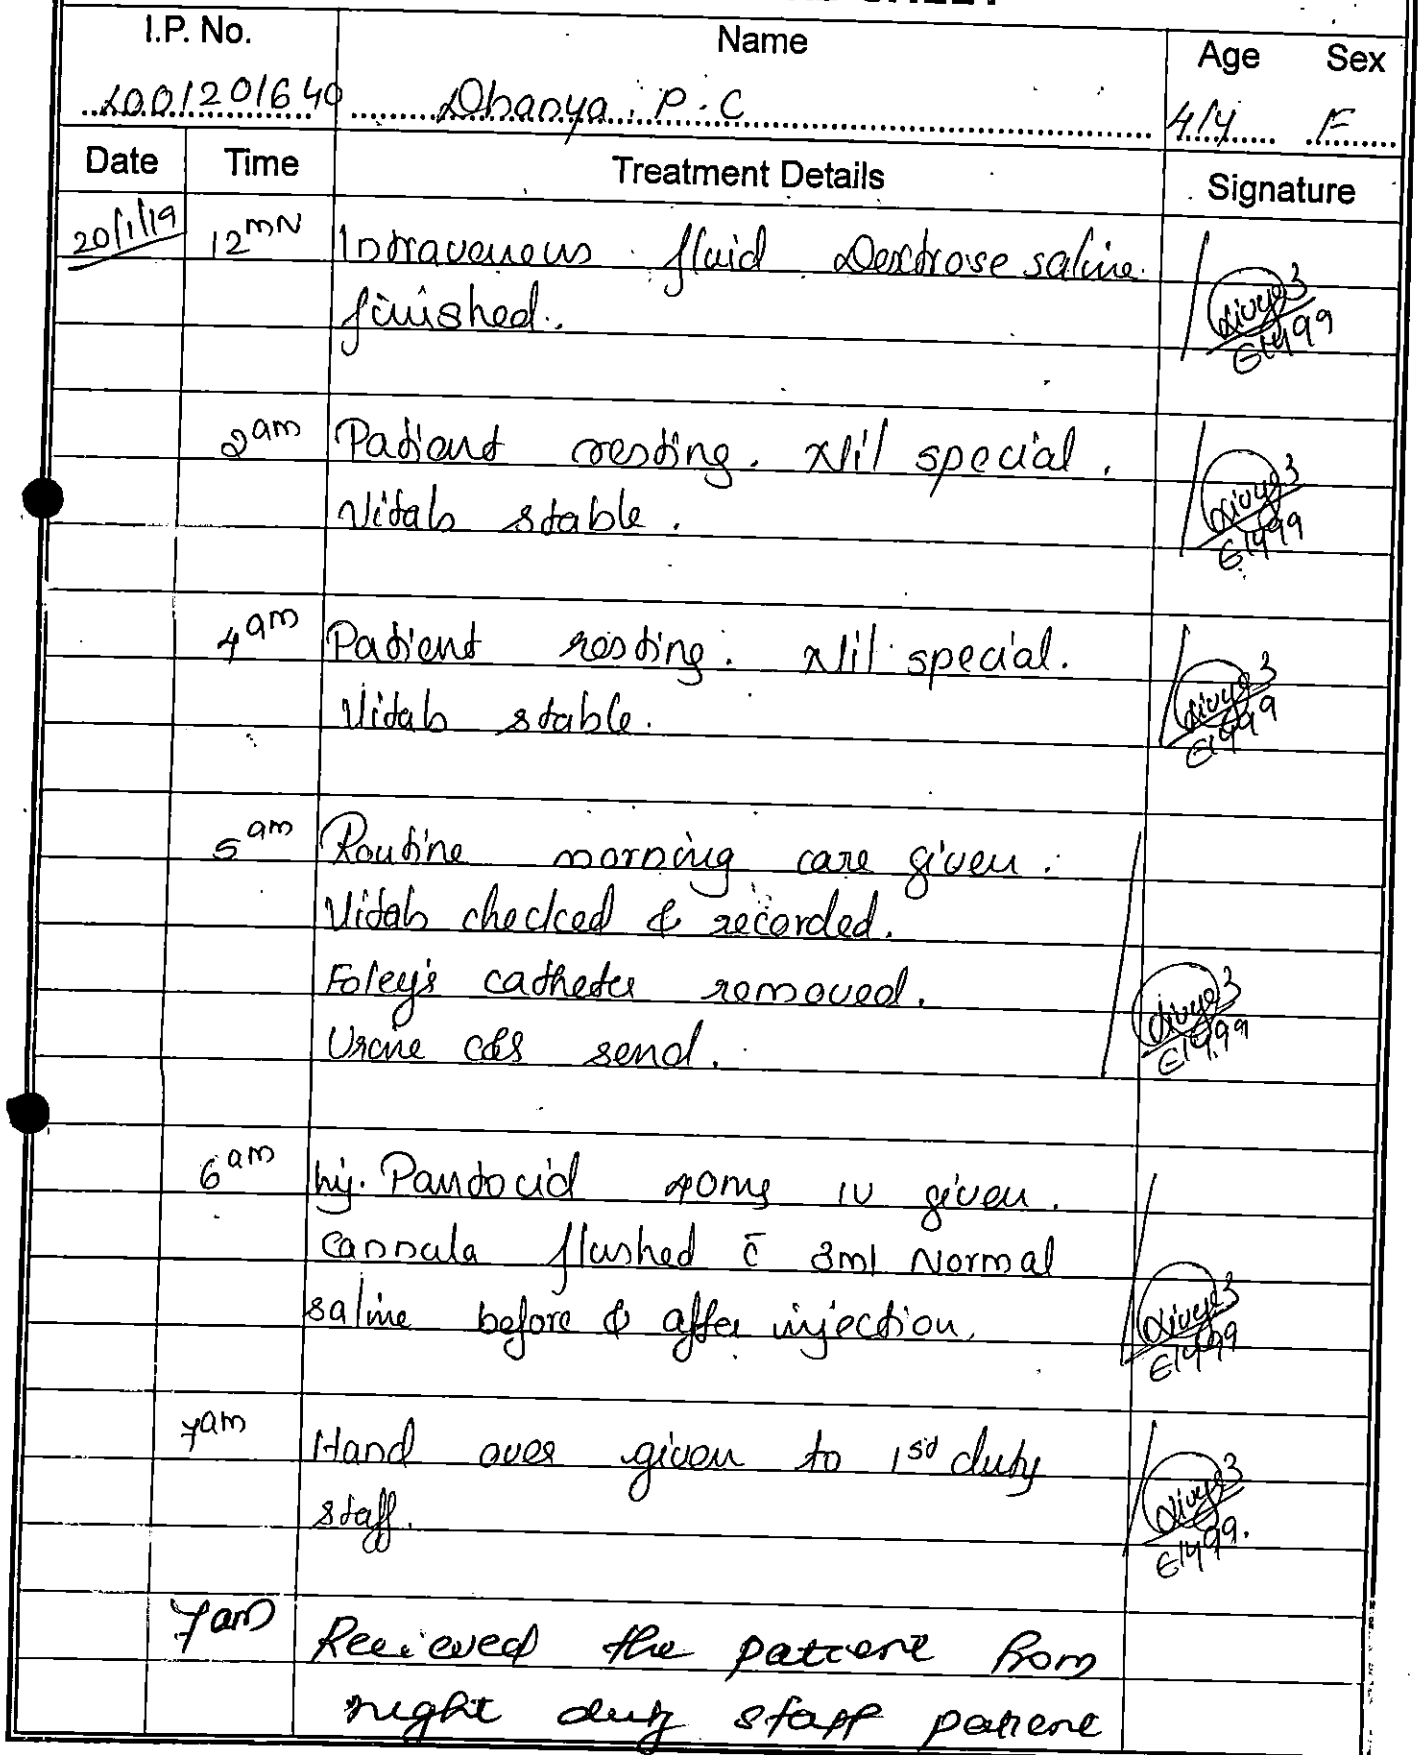 I.P. No. Name Age Sex
100/201640 Dhanya . P . C 41/y F
Date Time Treatment Details Signature
20/1/19 12 MN Intravenous fluid Dextrose saline
finished.
2 am Patient resting. Nil special.
Vitals stable.
4 am Patient resting. Nil special.
Vitals stable.
5 am Routine morning care given.
Vitals checked & recorded.
Foley's catheter removed.
Urine c&s send.
6 am Inj. Pantocid 40mg IV given.
Cannula flushed c̄ 3ml Normal
saline before & after injection.
7 am Hand over given to 1st duty
staff.
7 am Recieved the patient from
night duty staff patient